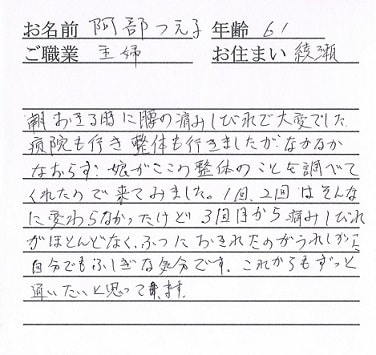 お名前 阿部つえ子 年齢 61
ご職業 主婦 お住まい 綾瀬
朝おきる時に腰の痛みしびれで大変でした
病院も行き整体も行きましたが、なかなか
なおらず、娘がここの整体のことを調べて
くれたので来てみました。1回、2回はそんな
に変わらなかったけど3回目から痛みしびれ
がほとんどなく、ふつにおきれたのがうれしかった
自分でもふしぎな気分です。これからもずっと
通いたいと思って来ます。